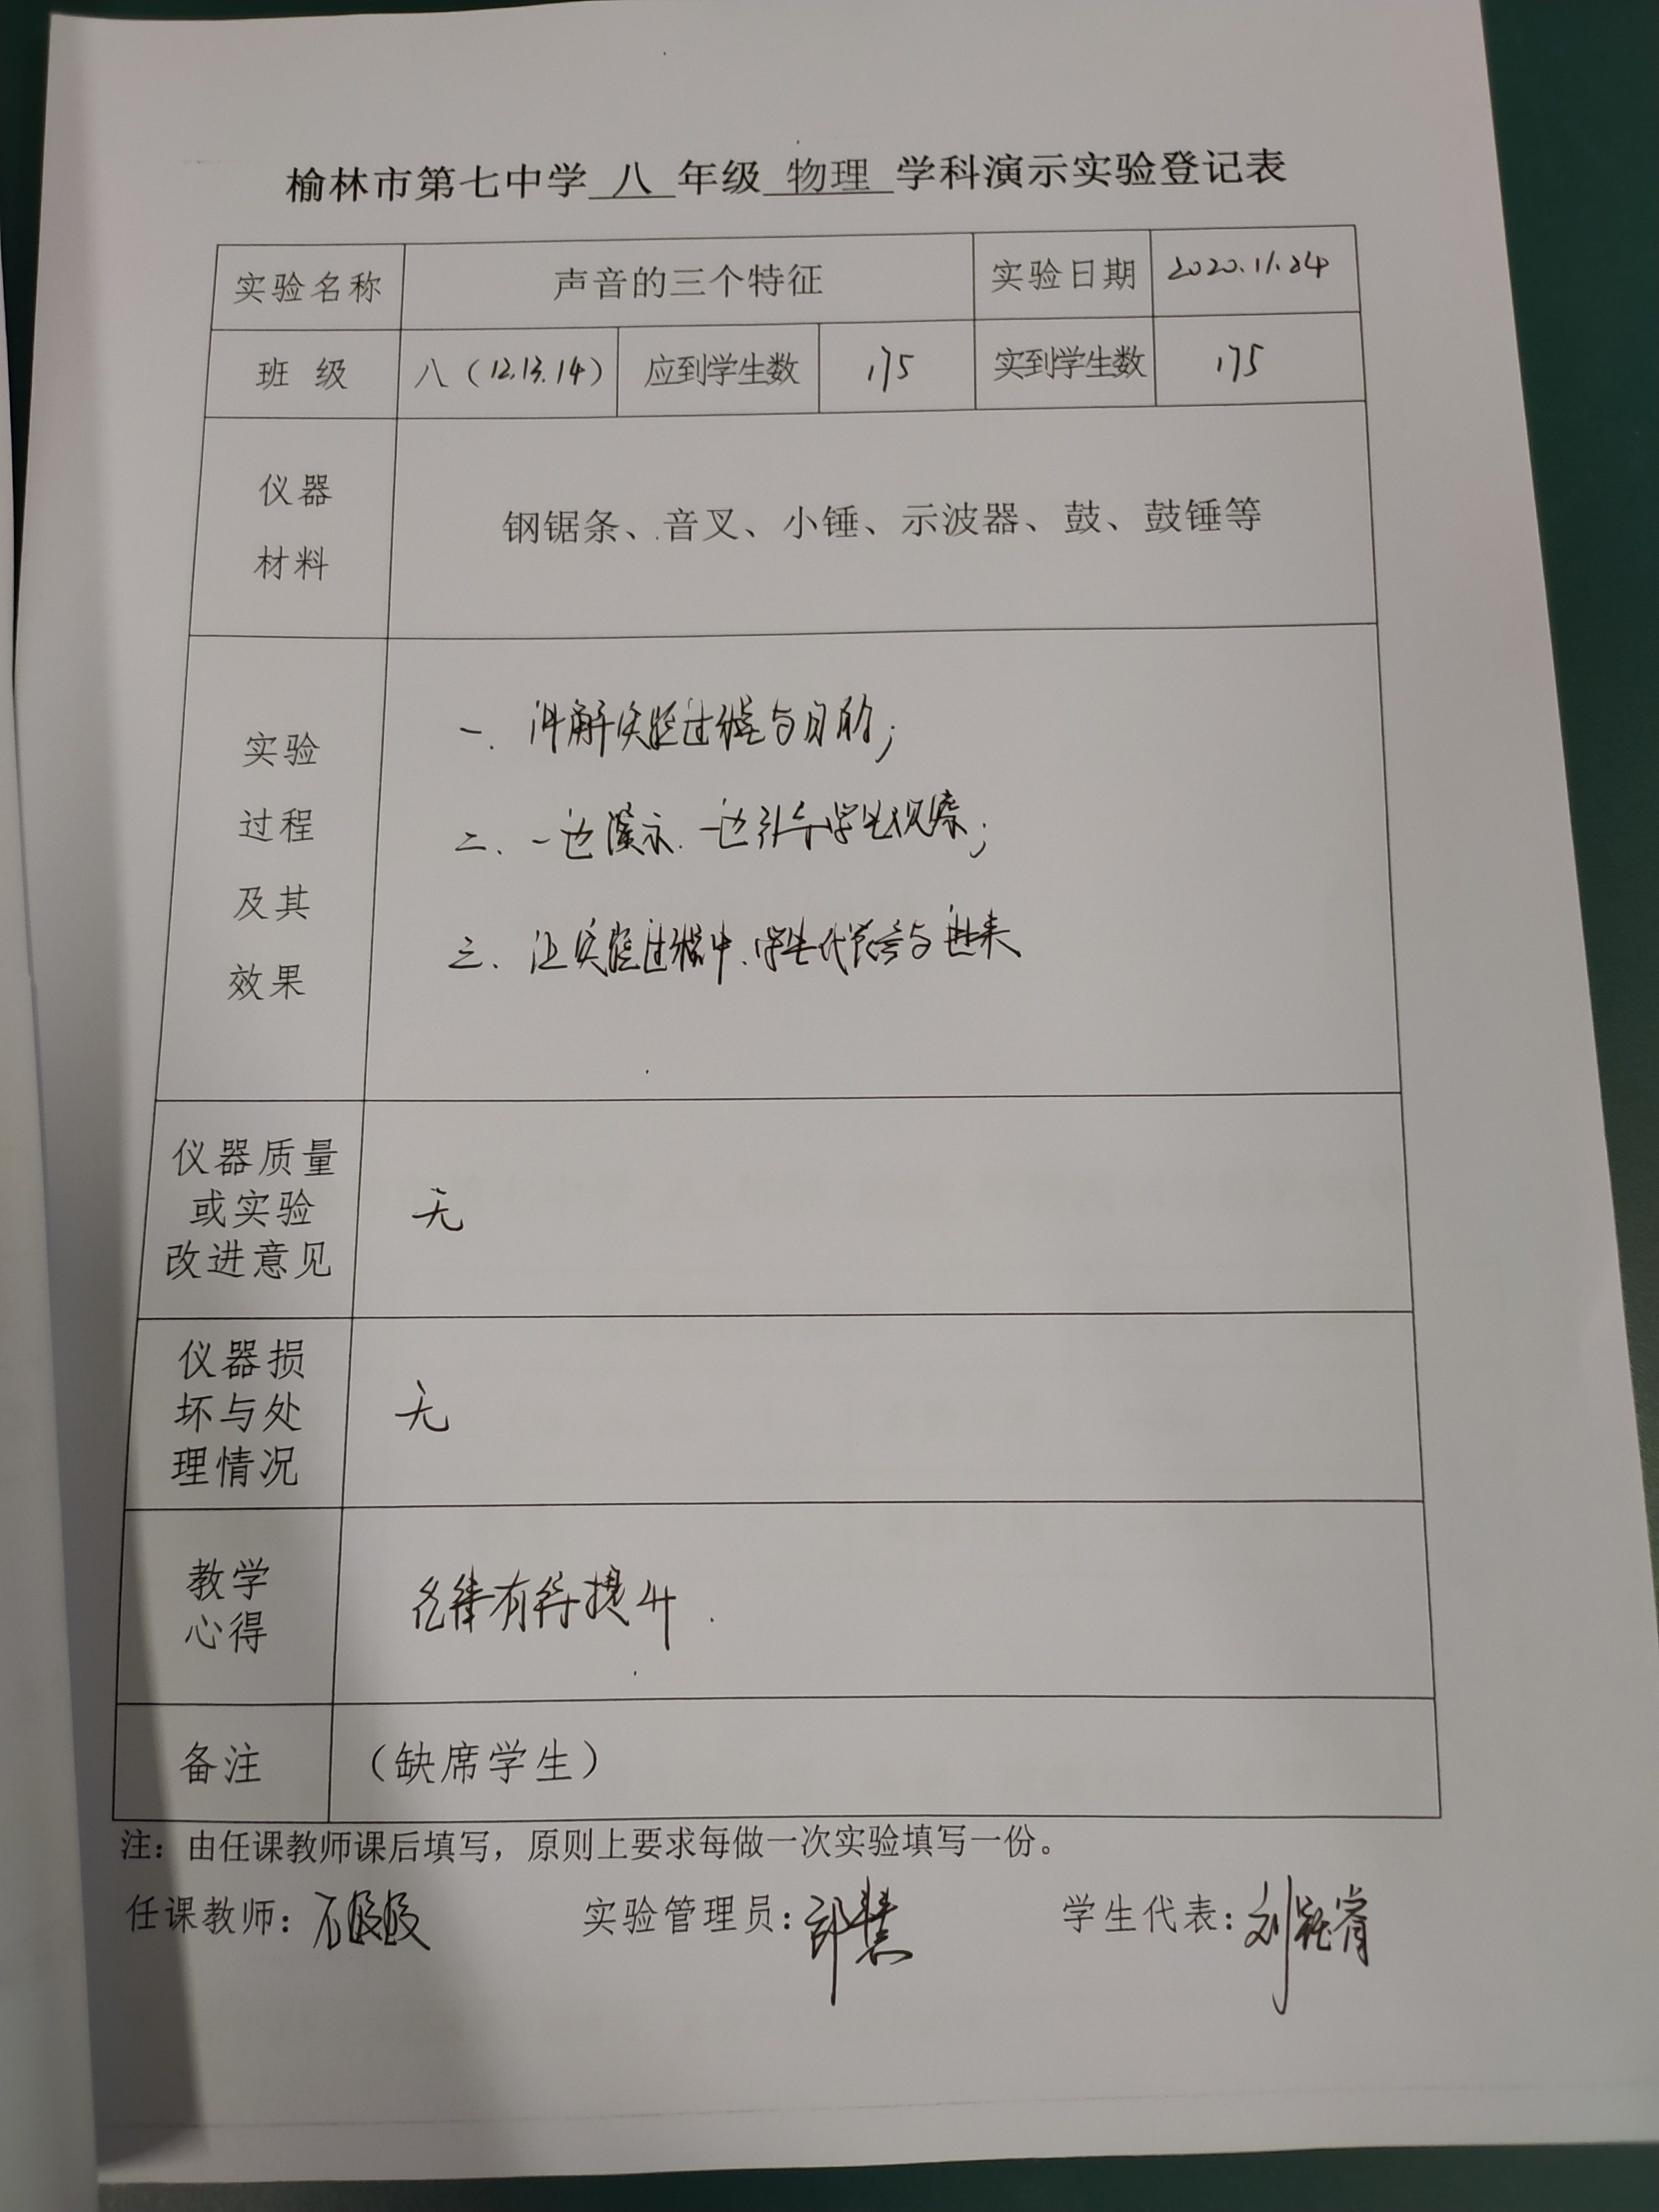 榆林市第七中学 八 年级 物理 学科演示实验登记表
实验名称 声音的三个特征 实验日期 2020.11.24
班 级 八（12.13.14） 应到学生数 175 实到学生数 175
仪器
材料
钢锯条、音叉、小锤、示波器、鼓、鼓锤等
实验
过程
及其
效果
一、讲解实验过程与目的；
二、一边演示、一边引导学生观察；
三、让实验过程中、学生代表参与进来
仪器质量
或实验
改进意见
无
仪器损
坏与处
理情况
无
教学
心得
纪律有待提升.
备注 （缺席学生）
注：由任课教师课后填写，原则上要求每做一次实验填写一份。
任课教师： 实验管理员： 慧 学生代表：刘 睿